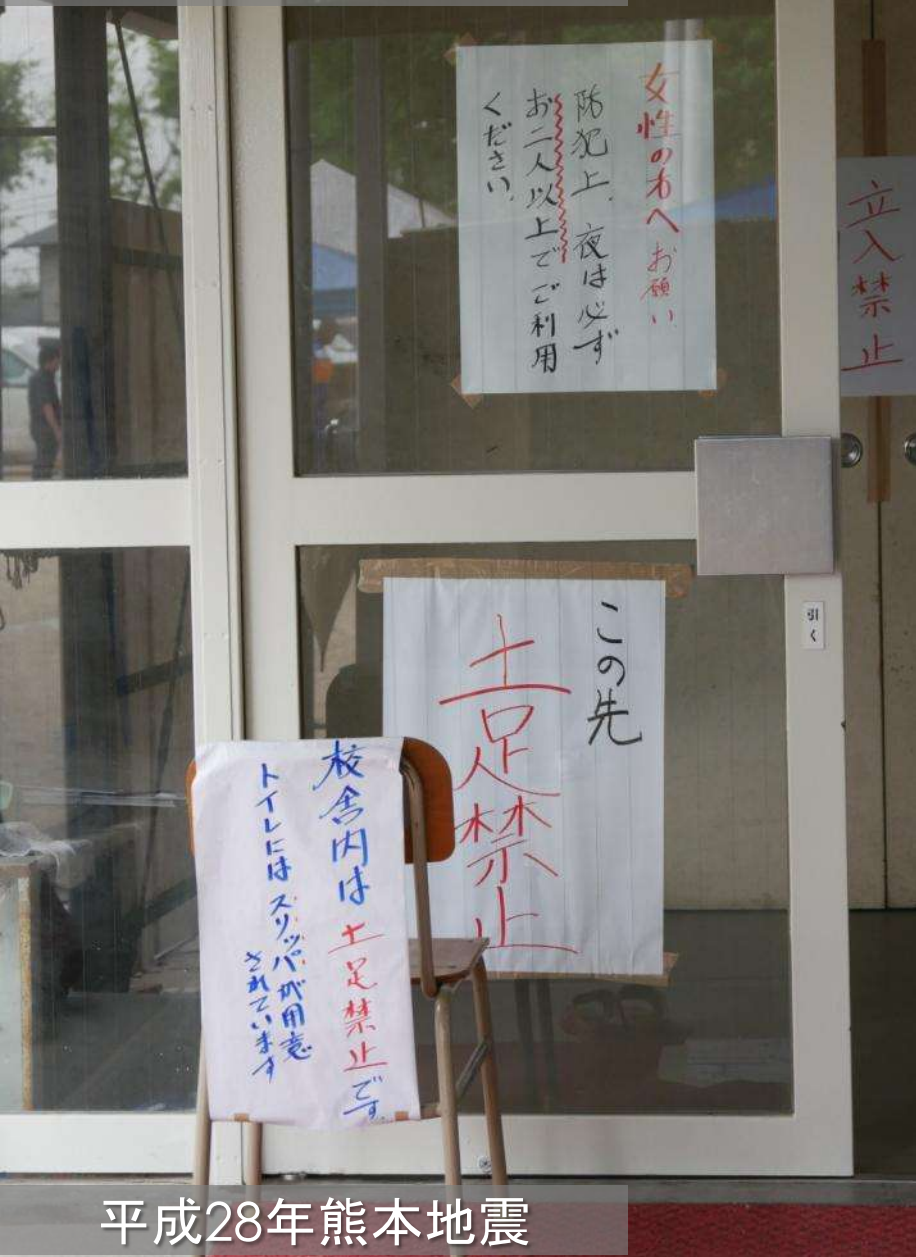 女性の方へお願い
防犯上、夜は必ず
お二人以上でご利用
ください。
立入禁止
引く
この先
土足禁止
校舎内は土足禁止です。
トイレにはスリッパが用意
されています
平成28年熊本地震